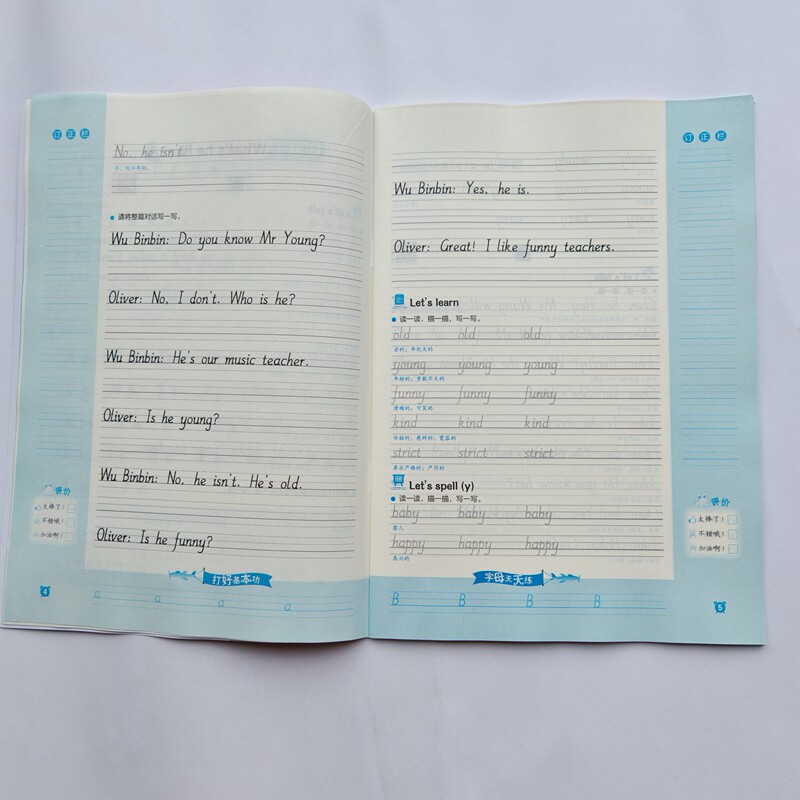 订正栏
No, he isn't.
不，他不年轻。
请将整篇对话写一写。
Wu Binbin: Do you know Mr Young?
Oliver: No, I don't. Who is he?
Wu Binbin: He's our music teacher.
Oliver: Is he young?
Wu Binbin: No, he isn't. He's old.
Oliver: Is he funny?
评价
太棒了！
不错哦！
加油啊！
打好基本功
4
a a a a
订正栏
Wu Binbin: Yes, he is.
Oliver: Great! I like funny teachers.
Let's learn
读一读，描一描，写一写。
old old old
老的；年纪大的
young young young
年轻的；岁数不大的
funny funny funny
滑稽的；可笑的
kind kind kind
体贴的；慈祥的；宽容的
strict strict strict
要求严格的；严厉的
Let's spell (y)
读一读，描一描，写一写。
baby baby baby
婴儿
happy happy happy
高兴的
评价
太棒了！
不错哦！
加油啊！
字母天天练
B B B B
5